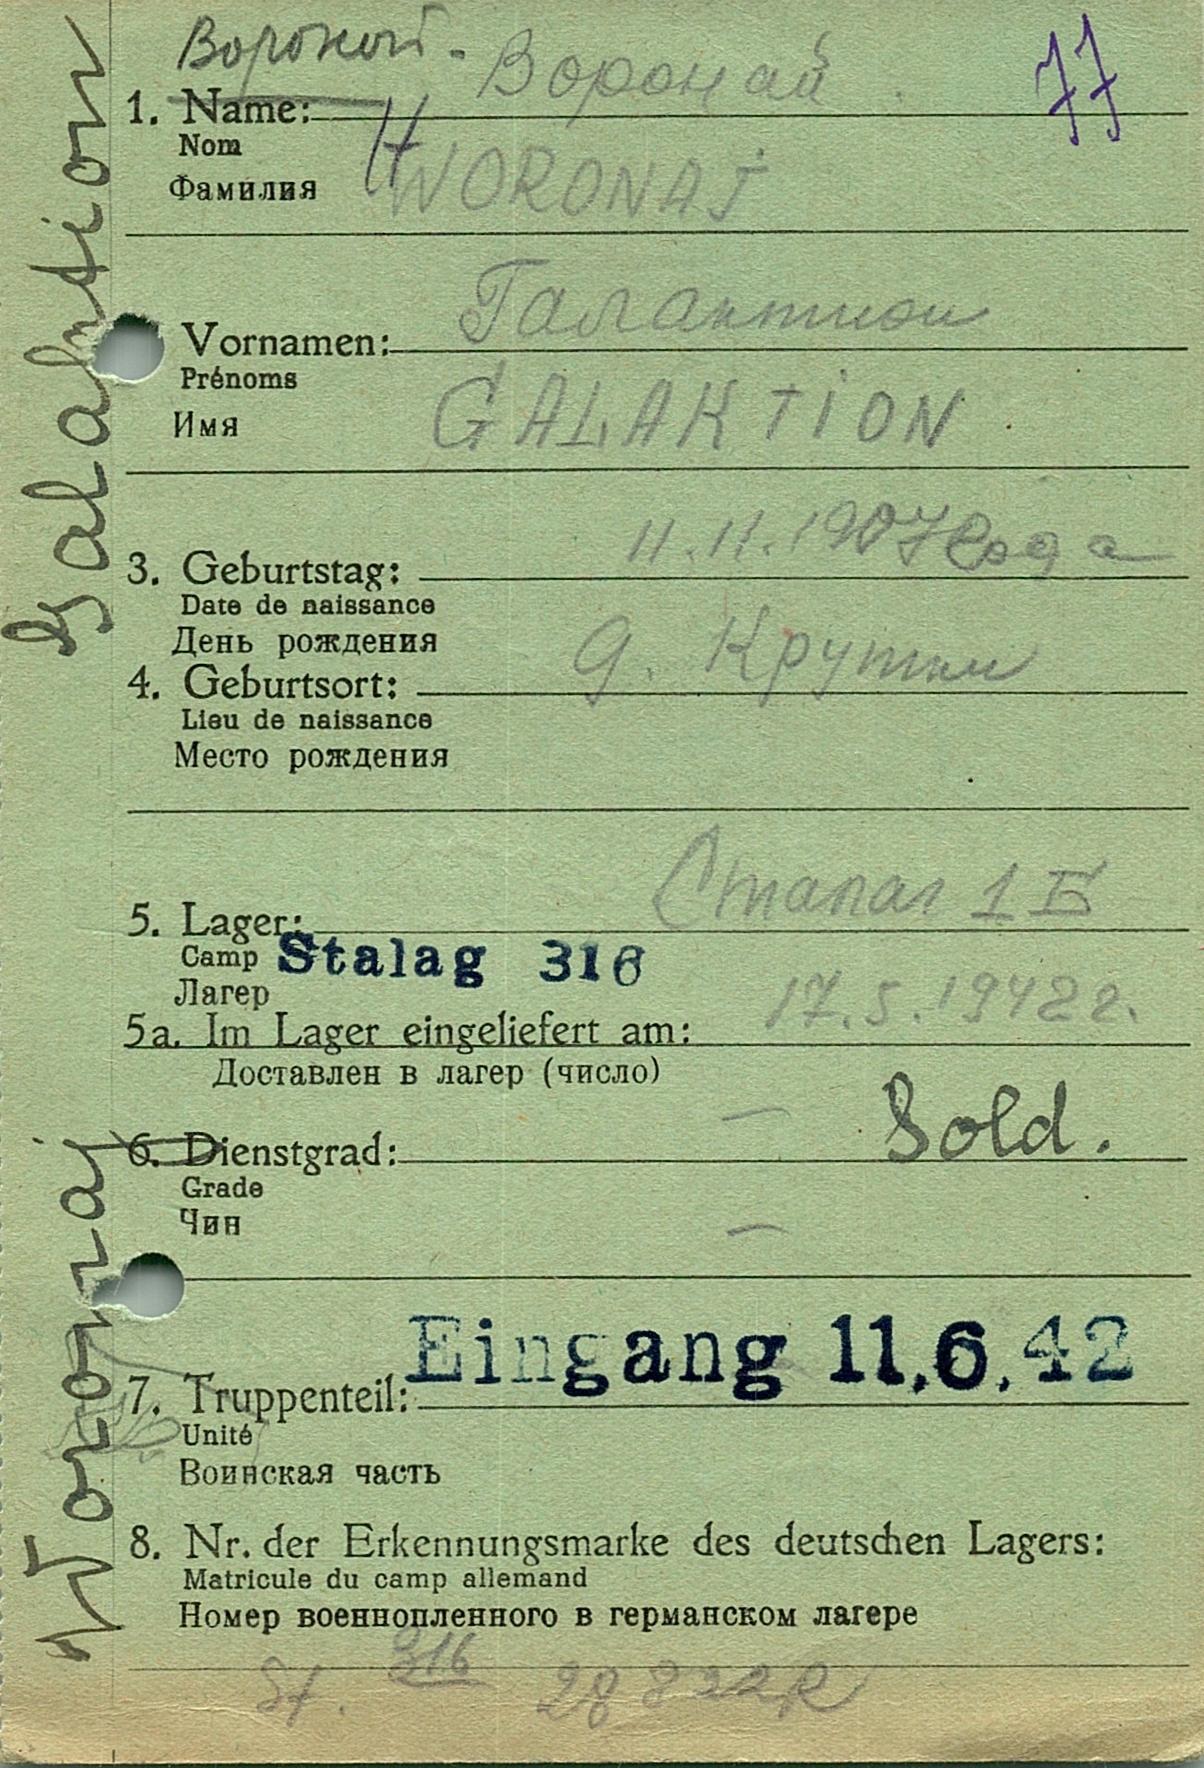 Вороной - Воронай
77
1. Name:
Nom
Фамилия
WORONAJ
Галактион
Vornamen:
Prénoms
Имя
GALAKTION
11.11.1907 года
3. Geburtstag:
Date de naissance
День рождения
д. Крутки
4. Geburtsort:
Lieu de naissance
Место рождения
Сталаг 1 Б
5. Lager:
Camp Stalag 316
Лагер
17.5.1942 г.
5a. Im Lager eingeliefert am:
Доставлен в лагер (число)
Sold.
6. Dienstgrad:
Grade
Чин
Eingang 11.6.42
7. Truppenteil:
Unité
Воинская часть
8. Nr. der Erkennungsmarke des deutschen Lagers:
Matricule du camp allemand
Номер военнопленного в германском лагере
St. 316 28822R
Woronaj Galaktion